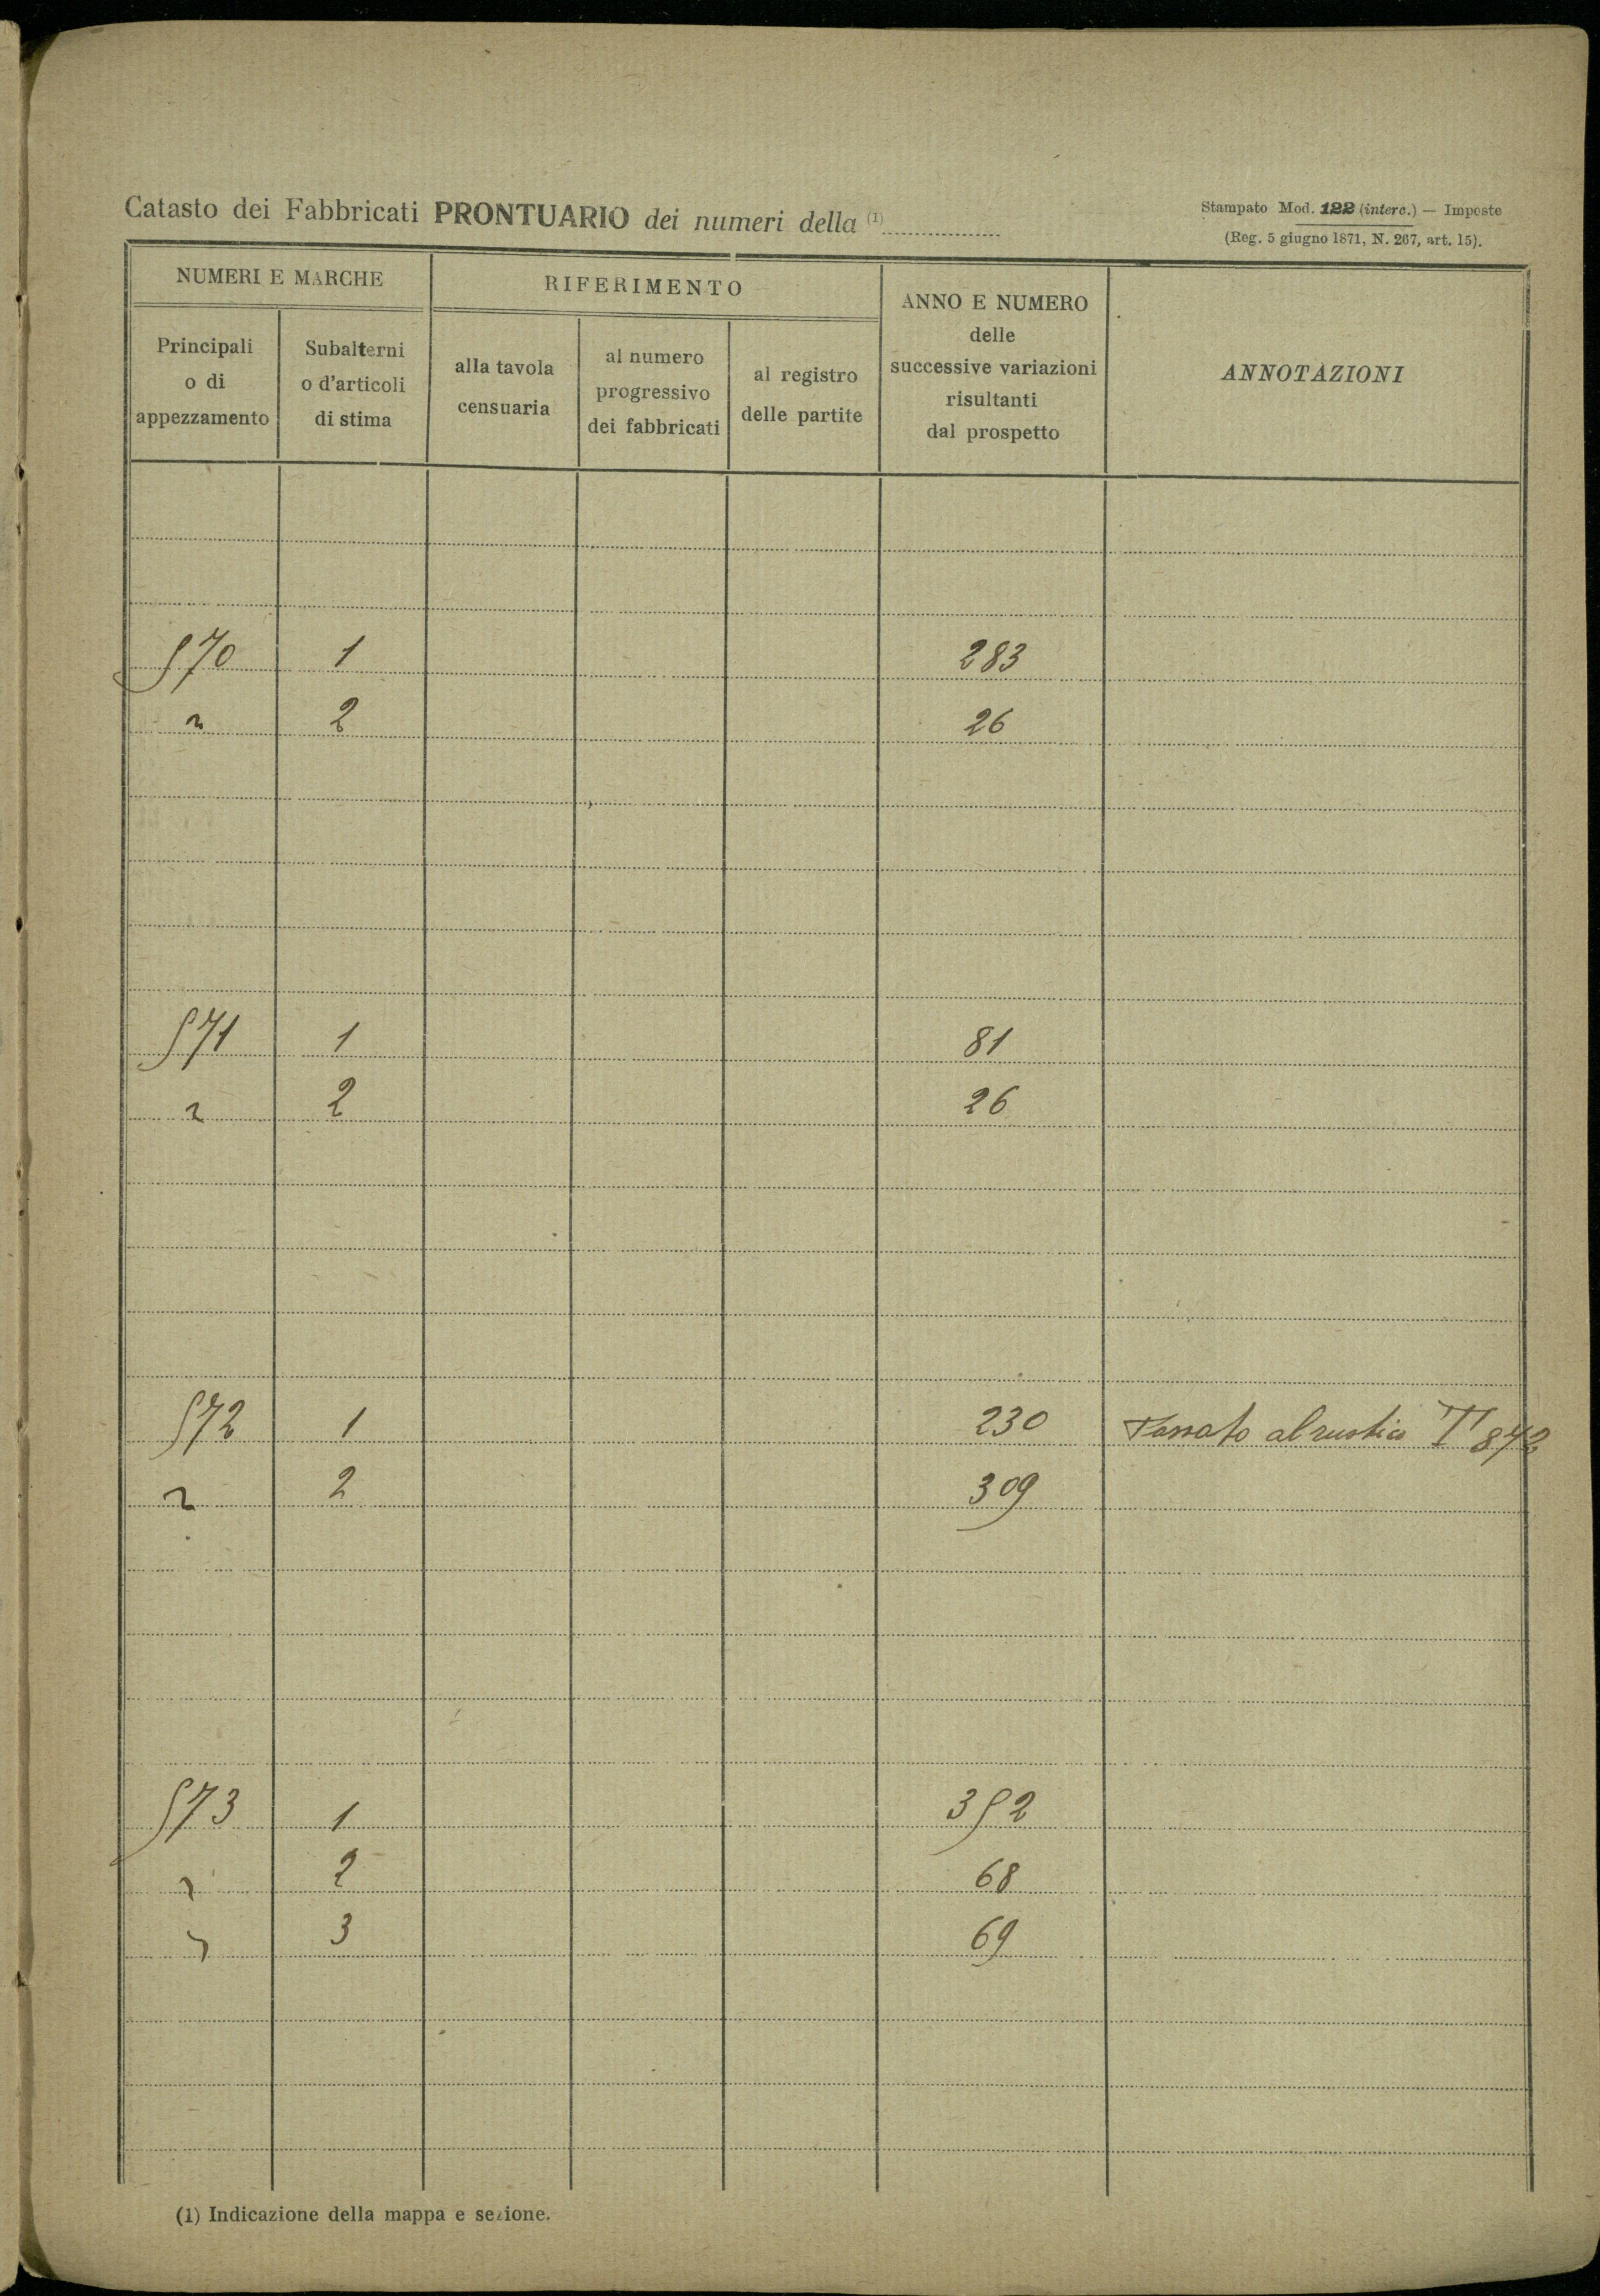 Catasto dei Fabbricati PRONTUARIO dei numeri della (1)
Stampato Mod. 122 (interc.) — Imposte
(Reg. 5 giugno 1871, N. 267, art. 15).
NUMERI E MARCHE
RIFERIMENTO
ANNO E NUMERO
delle
successive variazioni
risultanti
dal prospetto
ANNOTAZIONI
Principali
o di
appezzamento
Subalterni
o d'articoli
di stima
alla tavola
censuaria
al numero
progressivo
dei fabbricati
al registro
delle partite
570 1 283
" 2 26
571 1 81
" 2 26
572 1 230 Passato al rustico T 872
" 2 309
573 1 352
" 2 68
" 3 69
(1) Indicazione della mappa e sezione.